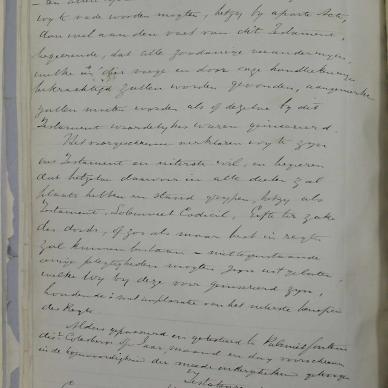 wy te rade worden mogten, hetzy by aparte Acte,
dan wel aan den voet van dit Testament,
begeerende, dat alle zoodanige veranderingen,
welke in voege en door onze handteekening
bekrachtigd zullen worden gevonden, aangemerkt
zullen moeten worden als of dezelve by dit
Testament woordelyks waren geinsereerd.
Het voorgeschrevene verklaren wy te zyn
ons Testament en uiterste wil, en begeeren
dat hetzelve daarvoor in alle deelen zal
plaats hebben en stand grypen, hetzy als
Testament, Codicil, Gifte ter zake
des doods, of zoo als maar best in regten
zal kunnen bestaan, niettegenstaande
eenige plegtigheden mogten zyn uitgelaten,
welke wy by deze voor geinsereerd
houdende met imploratie van het uiterste benefice
des Regts.
Aldus gepasseerd en getesteerd te Palmietfontein
dist Colesberg op Jaar, maand en dag voorschreven
in de tegenwoordigheid der mede ondergeteekende getuigen
by